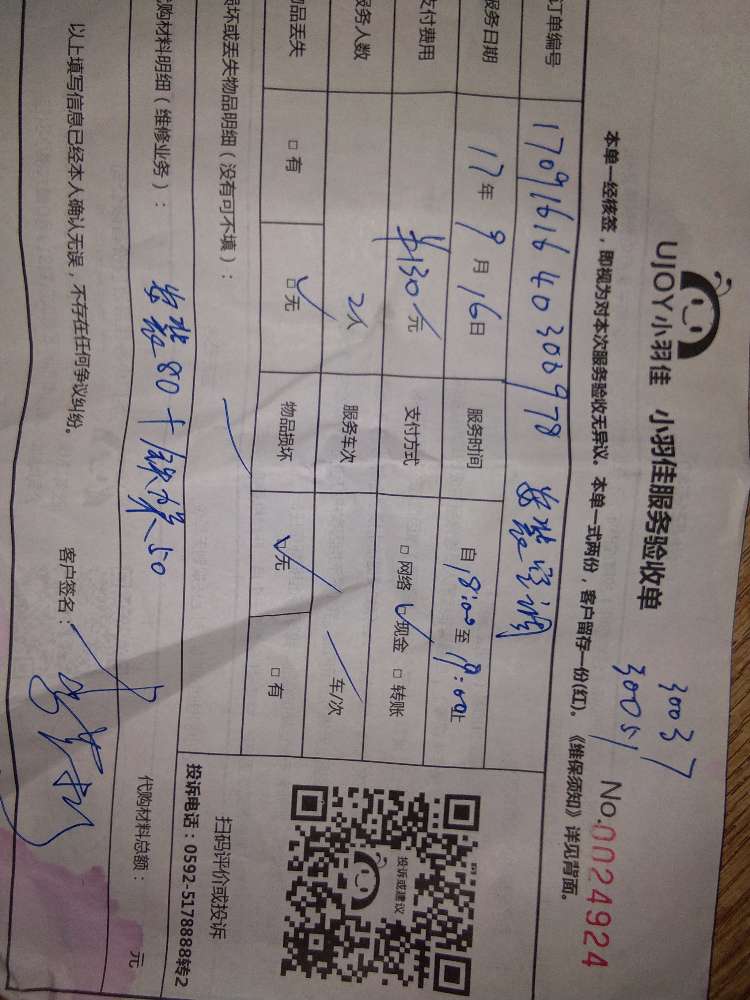 UJOY小羽佳 小羽佳服务验收单
30037
30051
No.0024924
本单一经核签，即视为对本次服务验收无异议。本单一式两份，客户留存一份(红)。《维保须知》详见背面。
订单编号 1709161640308978 安装空调
服务日期 17年9月16日 服务时间 自18:00至19:00止
支付费用 共130元 支付方式 □网络 ☑现金 □转账
服务人数 2人 服务车次 / 车/次
物品丢失 □有 ☑无 物品损坏 ☑无 □有
损坏或丢失物品明细（没有可不填）：
代购材料明细（维修业务）： 安装80+铁架50
代购材料总额： 元
以上填写信息已经本人确认无误，不存在任何争议纠纷。
客户签名：
投诉或建议
扫码评价或投诉
投诉电话：0592-5178888转2